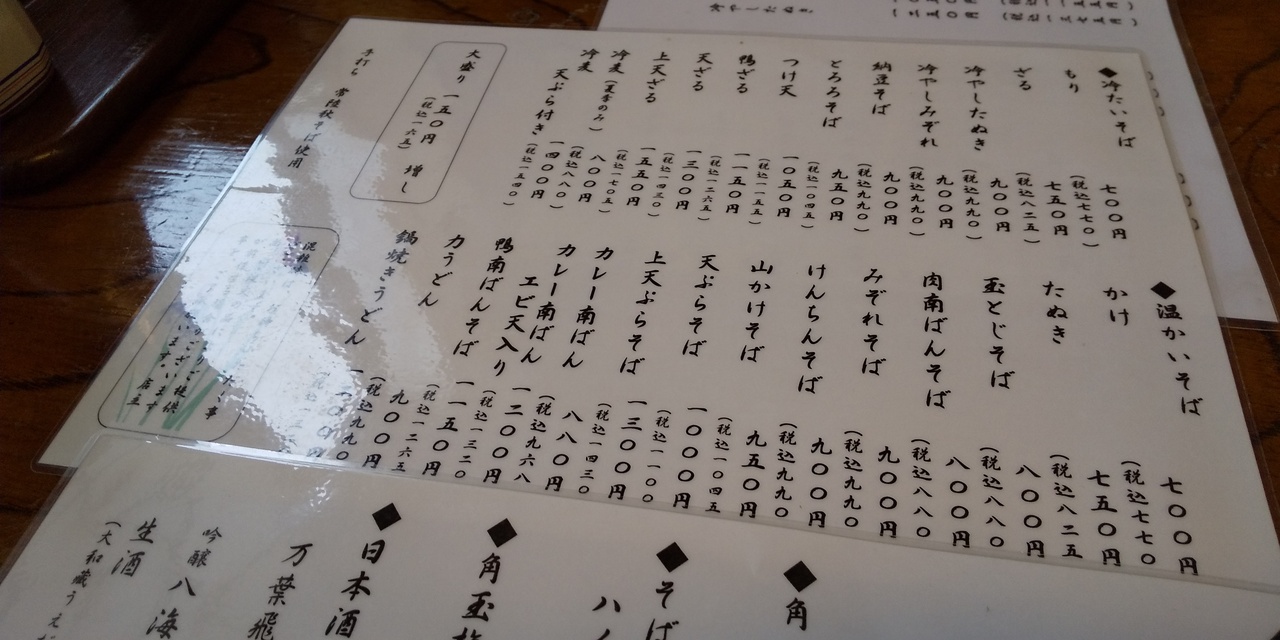 ◆冷たいそば
もり 七〇〇円
(税込七七〇)
ざる 七五〇円
(税込八二五)
冷やしたぬき 九〇〇円
(税込九九〇)
冷やしみぞれ 九〇〇円
(税込九九〇)
納豆そば 九〇〇円
(税込九九〇)
とろろそば 九五〇円
(税込一〇四五)
つけ天 一〇五〇円
(税込一一五五)
鴨ざる 一一五〇円
(税込一二六五)
天ざる 一三〇〇円
(税込一四三〇)
上天ざる 一五五〇円
(税込一七〇五)
冷麦(夏季のみ) 八〇〇円
(税込八八〇)
冷麦 天ぷら付き 一四〇〇円
(税込一五四〇)
大盛り 一五〇円 増し
(税込一六五)
手打ち 常陸秋そば使用
◆温かいそば
かけ 七〇〇円
(税込七七〇)
たぬき 七五〇円
(税込八二五)
玉とじそば 八〇〇円
(税込八八〇)
肉南ばんそば 八〇〇円
(税込八八〇)
みぞれそば 九〇〇円
(税込九九〇)
けんちんそば 九〇〇円
(税込九九〇)
山かけそば 九五〇円
(税込一〇四五)
天ぷらそば 一〇〇〇円
(税込一一〇〇)
上天ぷらそば 一三〇〇円
(税込一四三〇)
カレー南ばん 八八〇円
(税込九六八)
カレー南ばん
エビ天入り 一二〇〇円
(税込一三二〇)
鴨南ばんそば 一一五〇円
(税込一二六五)
力うどん 九〇〇円
(税込九九〇)
鍋焼きうどん
店主
◆角
◆そば
◆角玉
◆日本酒
万葉飛
吟醸 八海
生酒